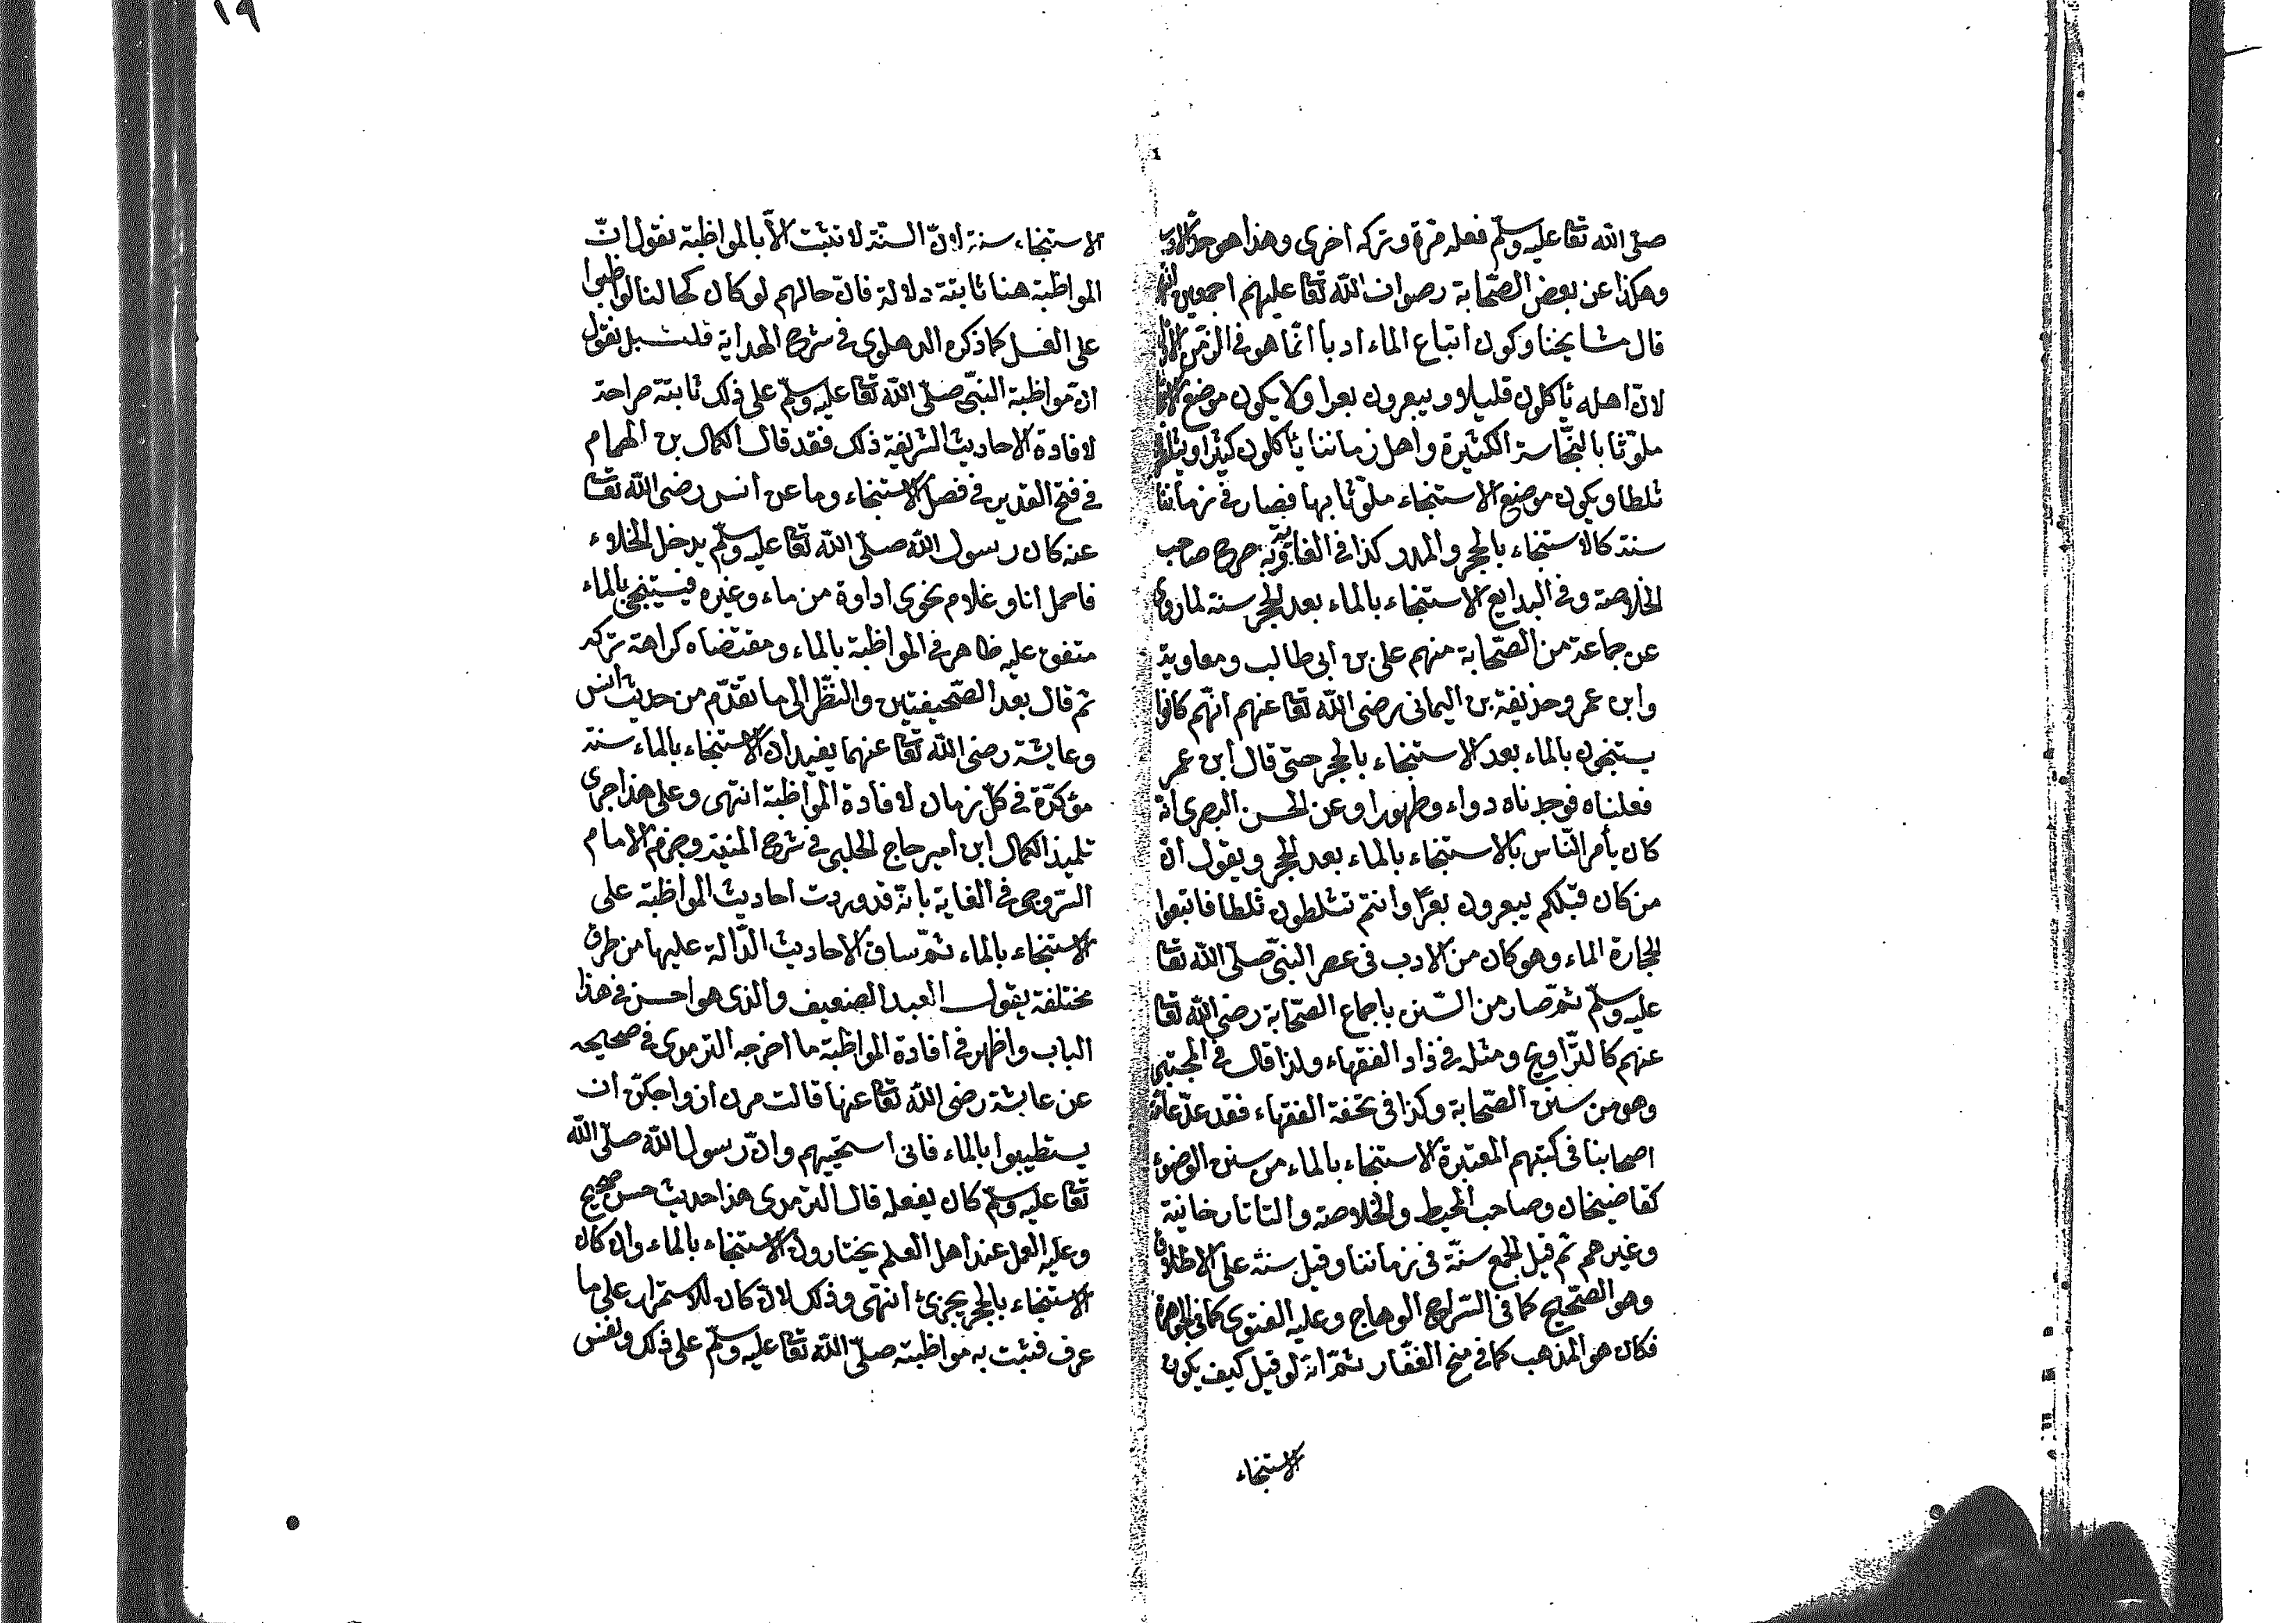 ١٩
صلى الله تعا عليه وسلّم فعله مرّة وتركه اخرى وهذا هو حدّ الادب
وهكذا عن بعض الصّحابة رضوان الله تعا عليهم اجمعين
قال مشايخنا وكون اتباع الماء ادبا انّما هو فى الزّمن الاوّل
لانّ اهله يأكلون قليلا ويبعرون بعرا ولا يكون موضع
ملوّثا بالنّجاسة الكثيرة واهل زماننا يأكلون كثيرا ويثلطون
ثلطا ويكون موضع الاستنجاء ملوّثا بها فصار فى زماننا
سنّة كالاستنجاء بالحجر والمدر كذا فى الغاية وبه صرح صاحب
الخلاصة وفى البدايع الاستنجاء بالماء بعد الحجر سنة لما روى
عن جماعة من الصّحابة منهم على بن ابى طالب ومعاوية
وابن عمر وحذيفة بن اليمانى رضى الله تعا عنهم انّهم كانوا
يستنجون بالماء بعد الاستنجاء بالحجر حتى قال ابن عمر
فعلناه فوجدناه دواء وطهورا وعن الحسن البصرى انّه
كان يأمر النّاس بالاستنجاء بالماء بعد الحجر ويقول انّ
من كان قبلكم يبعرون بعرًا وانتم تثلطون ثلطا فاتبعوا
الحجارة الماء وهو كان من الادب فى عصر النبىّ صلّى الله تعا
عليه وسلّم ثمّ صار من السّنن باجماع الصّحابة رضى الله تعا
عنهم كالتّراويح ومثله فى زاد الفقهاء ولذا قال فى المجتبى
وهو من سنن الصّحابة وكذا فى تحفة الفقهاء فقد عدّ عامّة
اصحابنا فى كتبهم المعتبرة الاستنجاء بالماء من سنن الوضوء
كقاضيخان وصاحب المحيط والخلاصة والتاتارخانية
وغيرهم ثم قيل الجمع سنّة فى زماننا وقيل سنة على الاطلاق
وهو الصّحيح كما فى السّراج الوهاج وعليه الفتوى كما فى الجوهرة
فكان هو المذهب كما فى منح الغفّار ثمّ انّه لو قيل كيف يكون
الاستنجاء
الاستنجاء سنة لانّ السنّة لا تثبت الاّ بالمواظبة نقول انّ
المواظبة هنا ثابتة دلالة فانّ حالهم لو كان كحالنا لواظبوا
على الغسل كما ذكره الدهلوى فى شرح الهداية قلت بل نقول
انّ مواظبة النبّى صلّى الله تعا عليه وسلّم على ذلك ثابتة صراحة
لافادة الاحاديث الشريفة ذلك فقد قال الكمال بن الهمام
فى فتح القدير فى فصل الاستنجاء وما عن انس رضى الله تعا
عنه كان رسول الله صلّى الله تعا عليه وسلّم يدخل الخلاء
فاحمل انا وغلام نحوى اداوة من ماء وعنزه فيستنجى بالماء
متفق عليه ظاهر فى المواظبة بالماء ومقتضاه كراهة تركه
ثم قال بعد الصّحيفتين والنّظر الى ما تقدّم من حديث انس
وعايشة رضى الله تعا عنهما يفيد ان الاستنجاء بالماء سنة
مؤكدّة فى كلّ زمان لافادة المواظبة انتهى وعلى هذا جرى
تلميذ الكمال ابن امير حاج الحلبى فى شرح المنية وجزم الامام
السّروجى فى الغاية بانّه قد وردت احاديث المواظبة على
الاستنجاء بالماء ثمّ ساق الاحاديث الدّالة عليها من طرق
مختلفة يقول العبد الضعيف والذى هو احسن فى هذا
الباب واظهر فى افادة المواظبة ما اخرجه الترمذى فى صحيحه
عن عايشة رضى الله تعا عنها قالت مرن ازواجكنّ ان
يستطيبوا بالماء فانى استحييهم وانّ رسول الله صلّى الله
تعا عليه وسلّم كان يفعله قال الترمذى هذا حديث حسن صحيح
وعليه العمل عند اهل العلم يختارون الاستنجاء بالماء وان كان
الاستنجاء بالحجر يجزئ انتهى وذلك لانّ كان للاستمرار على ما
عرف فثبت به مواظبته صلّى الله تعا عليه وسلّم على ذلك ونفس